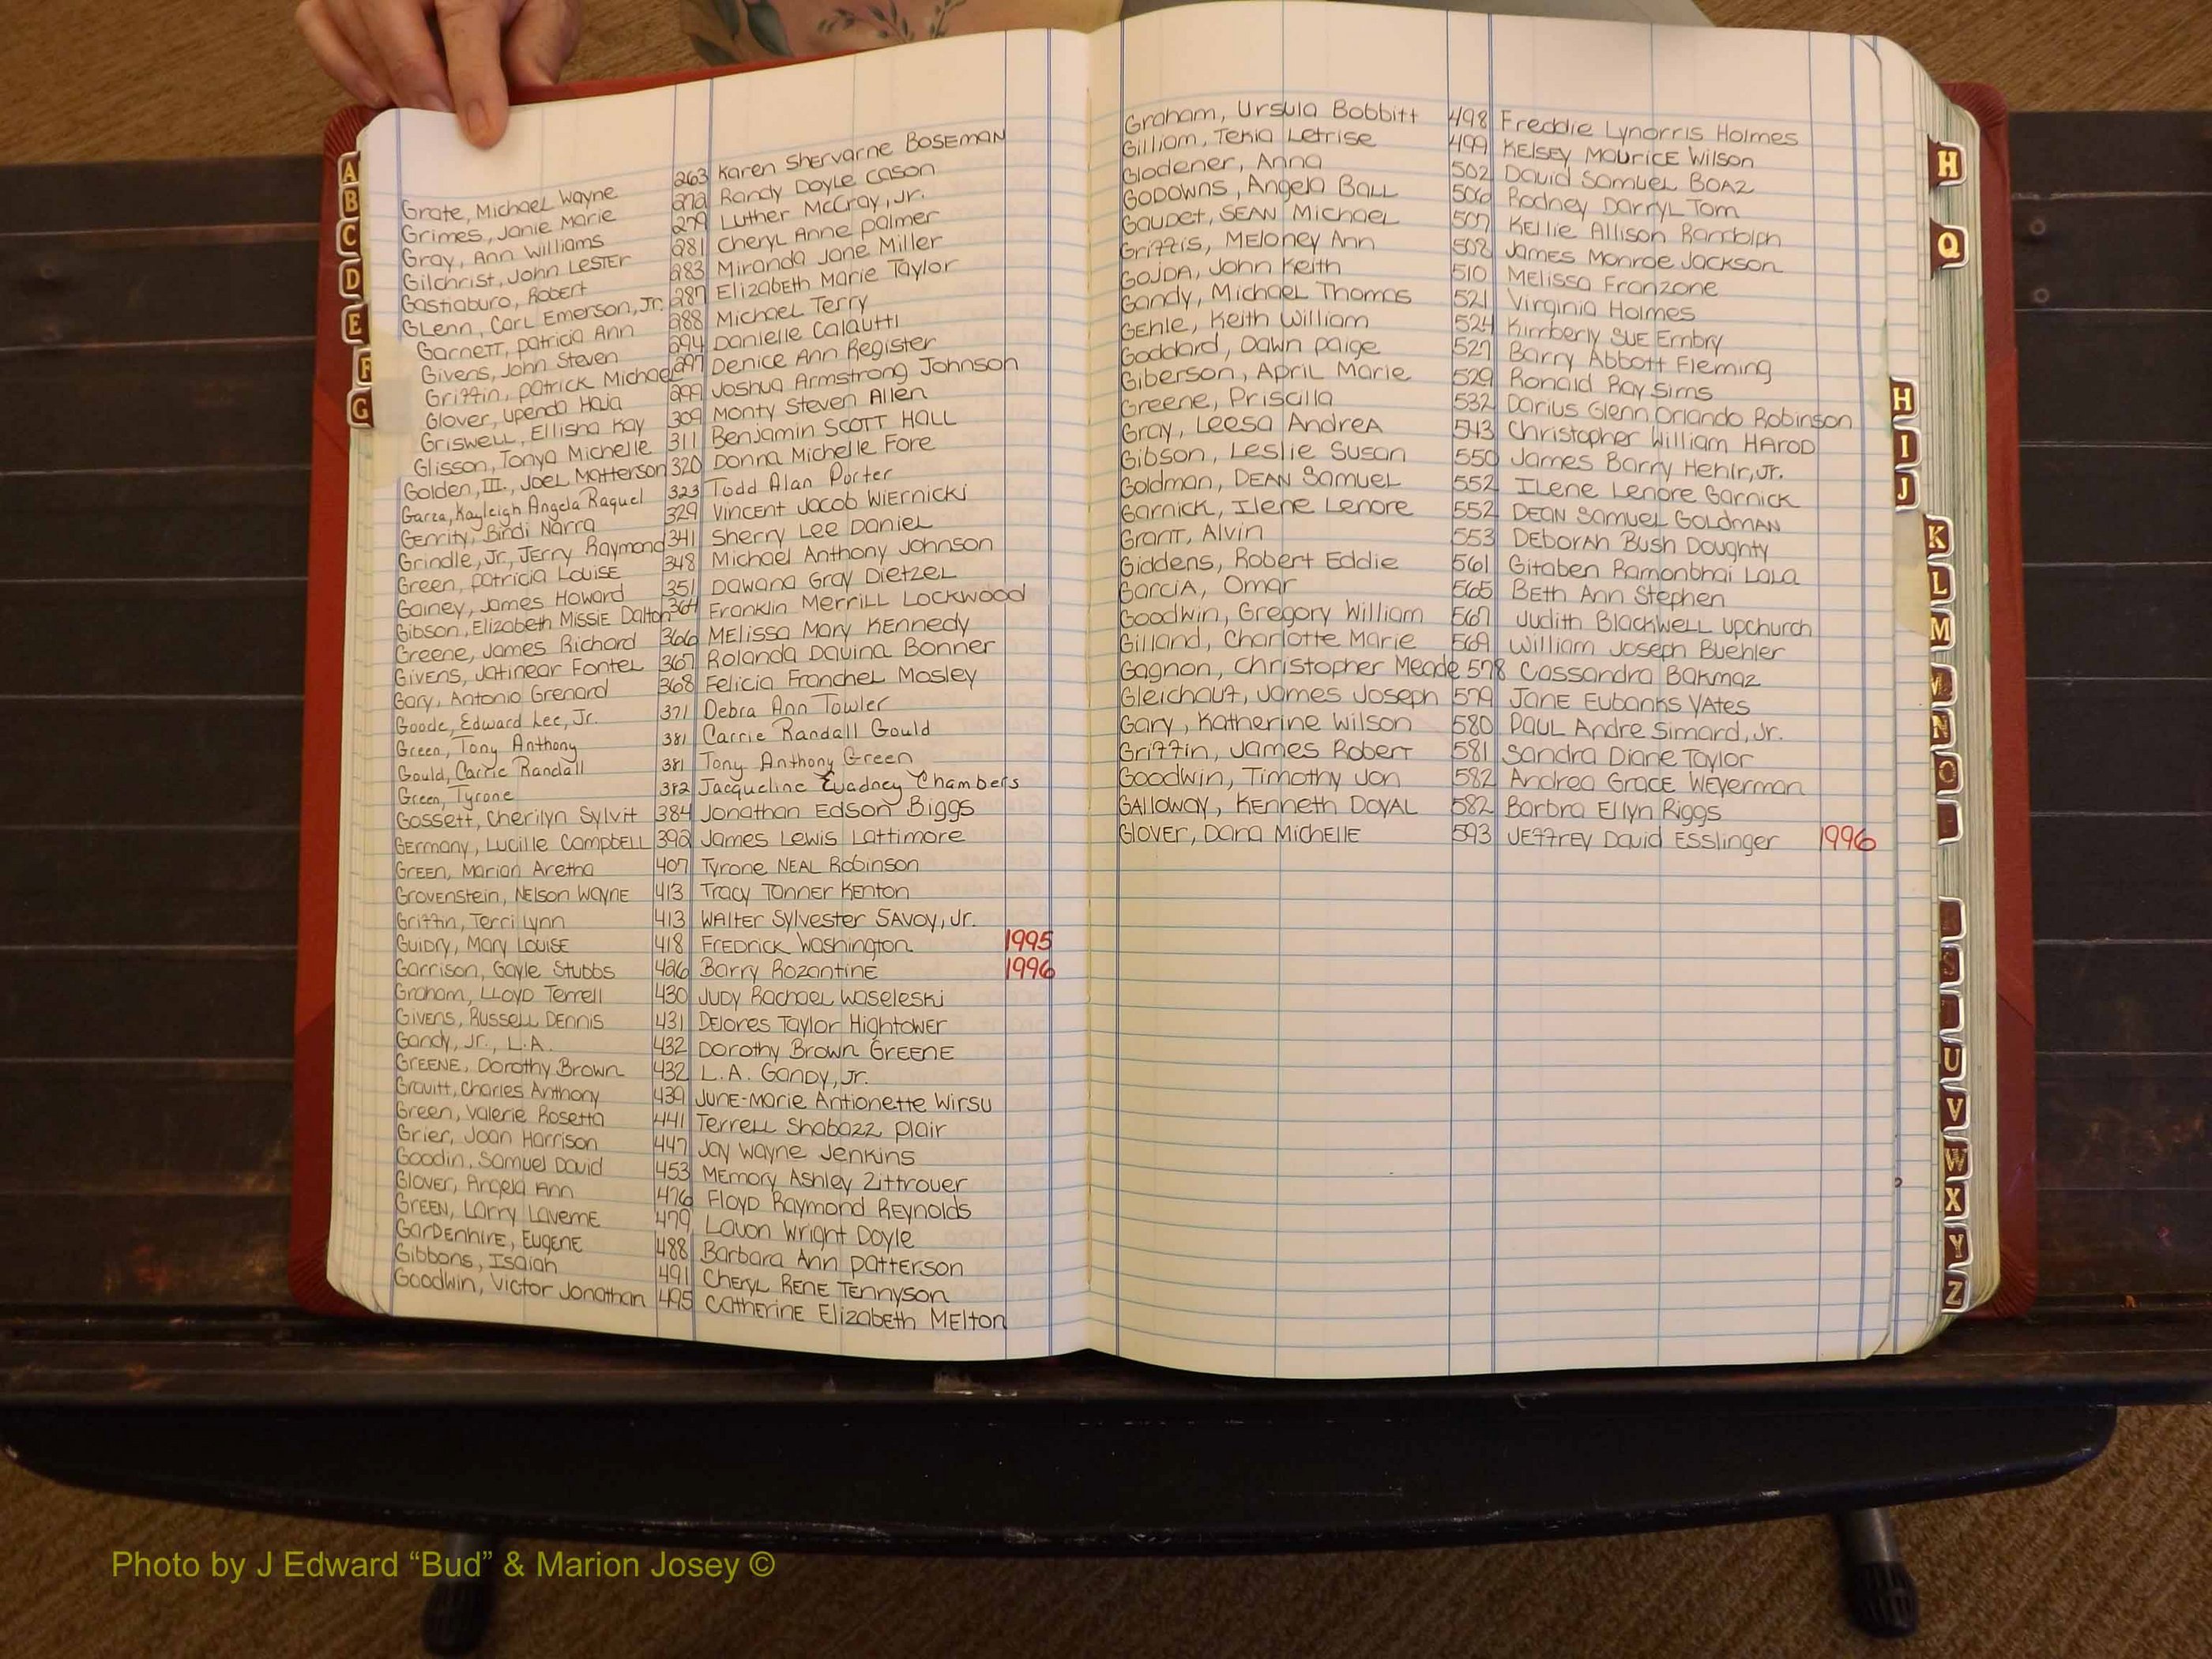 Grate, Michael Wayne 263 Karen Shervarne Boseman
Grimes, Janie Marie 272 Randy Doyle Cason
Gray, Ann Williams 279 Luther McCray, Jr.
Gilchrist, John Lester 281 Cheryl Anne Palmer
Gastiaburo, Robert 283 Miranda Jane Miller
Glenn, Carl Emerson, Jr. 287 Elizabeth Marie Taylor
Garnett, Patricia Ann 288 Michael Terry
Givens, John Steven 294 Danielle Calautti
Griffin, Patrick Michael 297 Denice Ann Register
Glover, Upendo Haja 299 Joshua Armstrong Johnson
Griswell, Ellisha Kay 309 Monty Steven Allen
Glisson, Tonya Michelle 311 Benjamin Scott Hall
Golden, III., Joel Matterson 320 Donna Michelle Fore
Garza, Kayleigh Angela Raquel 323 Todd Alan Porter
Gerrity, Bindi Narra 329 Vincent Jacob Wiernicki
Grindle, Jr., Jerry Raymond 341 Sherry Lee Daniel
Green, Patricia Louise 348 Michael Anthony Johnson
Gainey, James Howard 351 Dawana Gray Dietzel
Gibson, Elizabeth Missie Dalton 364 Franklin Merrill Lockwood
Greene, James Richard 366 Melissa Mary Kennedy
Givens, Jatinear Fontel 367 Rolanda Davina Bonner
Gary, Antonio Grenard 368 Felicia Franchel Mosley
Goode, Edward Lee, Jr. 371 Debra Ann Towler
Green, Tony Anthony 381 Carrie Randall Gould
Gould, Carrie Randall 381 Tony Anthony Green
Green, Tyrone 382 Jacqueline Evadney Chambers
Gossett, Cherilyn Sylvit 384 Jonathan Edson Biggs
Germany, Lucille Campbell 392 James Lewis Lattimore
Green, Marian Aretha 407 Tyrone Neal Robinson
Grovenstein, Nelson Wayne 413 Tracy Tanner Kenton
Griffin, Terri Lynn 413 Walter Sylvester Savoy, Jr.
Guidry, Mary Louise 418 Fredrick Washington 1995
Garrison, Gayle Stubbs 426 Barry Rozantine 1996
Graham, Lloyd Terrell 430 Judy Rachael Waseleski
Givens, Russell Dennis 431 Delores Taylor Hightower
Gandy, Jr., L.A. 432 Dorothy Brown Greene
Greene, Dorothy Brown 432 L.A. Gandy, Jr.
Gravitt, Charles Anthony 439 June-Marie Antionette Wirsu
Green, Valerie Rosetta 441 Terrell Shabazz Plair
Grier, Joan Harrison 447 Jay Wayne Jenkins
Goodin, Samuel David 453 Memory Ashley Zittrouer
Glover, Angela Ann 476 Floyd Raymond Reynolds
Green, Larry Laverne 479 Lavon Wright Doyle
Gardenhire, Eugene 488 Barbara Ann Patterson
Gibbons, Isaiah 491 Cheryl Rene Tennyson
Goodwin, Victor Jonathan 495 Catherine Elizabeth Melton
Graham, Ursula Bobbitt 498 Freddie Lynorris Holmes
Gilliam, Tekia Letrise 499 Kelsey Maurice Wilson
Glodener, Anna 502 David Samuel Boaz
Godowns, Angela Ball 506 Rodney Darryl Tom
Gaudet, Sean Michael 507 Kellie Allison Randolph
Griffis, Meloney Ann 508 James Monroe Jackson
Gojda, John Keith 510 Melissa Franzone
Gandy, Michael Thomas 521 Virginia Holmes
Gehle, Keith William 524 Kimberly Sue Embry
Goddard, Dawn Paige 527 Barry Abbott Fleming
Giberson, April Marie 529 Ronald Ray Sims
Greene, Priscilla 532 Darius Glenn Orlando Robinson
Gray, Leesa Andrea 543 Christopher William Harod
Gibson, Leslie Susan 550 James Barry Hehir, Jr.
Goldman, Dean Samuel 552 Ilene Lenore Garnick
Garnick, Ilene Lenore 552 Dean Samuel Goldman
Grant, Alvin 553 Deborah Bush Doughty
Giddens, Robert Eddie 561 Gitaben Ramonbhai Lala
Garcia, Omar 565 Beth Ann Stephen
Goodwin, Gregory William 567 Judith Blackwell Upchurch
Gilland, Charlotte Marie 569 William Joseph Buehler
Gagnon, Christopher Meade 578 Cassandra Bakmaz
Gleichauf, James Joseph 579 Jane Eubanks Yates
Gary, Katherine Wilson 580 Paul Andre Simard, Jr.
Griffin, James Robert 581 Sandra Diane Taylor
Goodwin, Timothy Jon 582 Andrea Grace Weyerman
Galloway, Kenneth Doyal 582 Barbra Ellyn Riggs
Glover, Dara Michelle 593 Jeffrey David Esslinger 1996
A
B
C
D
E
F
G
H
Q
H
I
J
K
L
M
N
O
U
V
W
X
Y
Z
Photo by J Edward “Bud” & Marion Josey ©